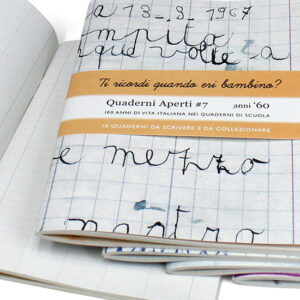 a 13-8-1967
mpito
que volte
Ti ricordi quando eri bambino?
Quaderni Aperti #7 anni '60
100 ANNI DI VITA ITALIANA NEI QUADERNI DI SCUOLA
10 QUADERNI DA SCRIVERE E DA COLLEZIONARE
e mezzo
nastro